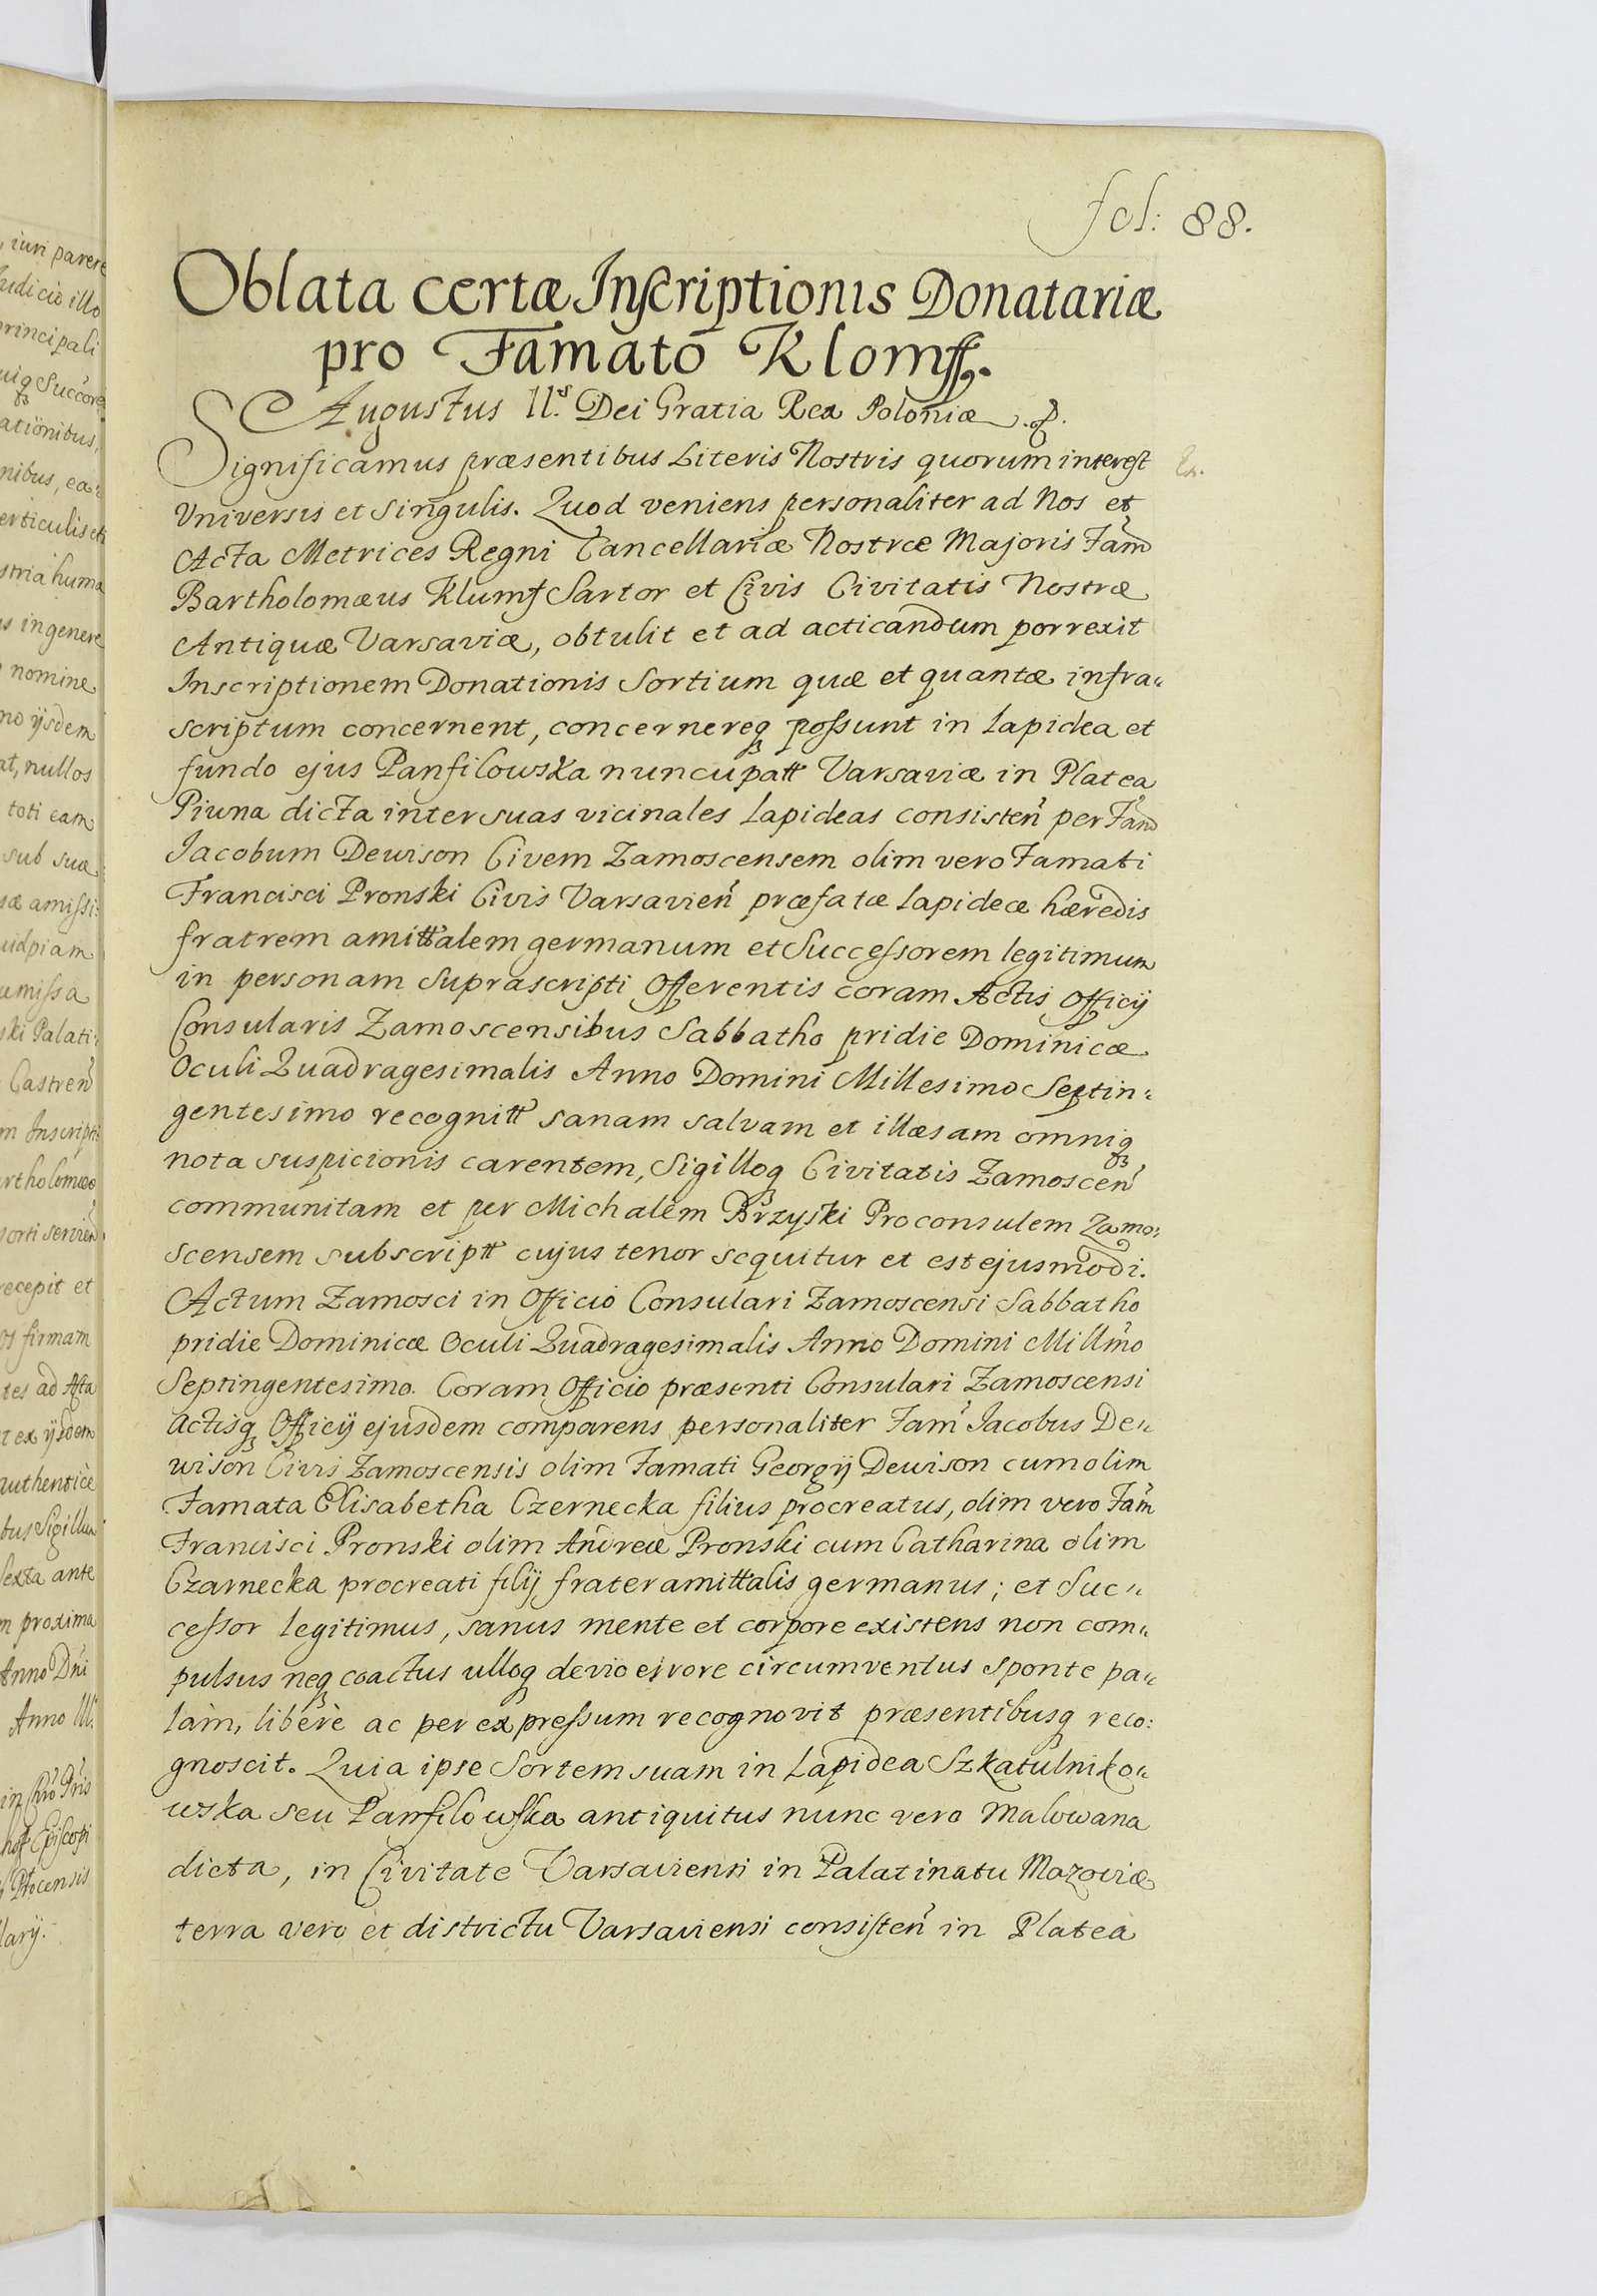 fol: 88.
Oblata certæ Inscriptionis Donatariæ
pro Famato Klomff.
Augustus II.s Dei Gratia Rex Poloniæ
Significamus præsentibus Literis Nostris quorum interest
Universis et singulis. Quod veniens personaliter ad Nos et
Acta Metrices Regni Cancellariæ Nostræ Majoris Fam
Bartholomæus Klumf Sartor et Civis Civitatis Nostræ
Antiquæ Varsaviæ, obtulit et ad acticandum porrexit
Inscriptionem Donationis Sortium quæ et quantæ infra„
scriptum concernent, concernereq possunt in Lapidea et
fundo ejus Panfilowska nuncupatt Varsaviæ in Platea
Piwna dicta inter suas vicinales Lapideas consisten per Fam
Jacobum Dewison Civem Zamoscensem olim vero Famati
Francisci Pronski Civis Varsavien præfatæ Lapideæ hæredis
fratrem amittalem germanum et Successorem legitimum
in personam suprascripti Offerentis coram Actis Officij
Consularis Zamoscensibus Sabbatho pridie Dominicæ
Oculi Quadragesimalis Anno Domini Millesimo Septin:
gentesimo recognitt sanam salvam et illæsam omniq
nota suspicionis carentem, Sigilloq Civitatis Zamoscen
communitam et per Michalem Brzyski Proconsulem Zamo:
scensem subscriptt cujus tenor sequitur et est ejusmodi.
Actum Zamosci in Officio Consulari Zamoscensi Sabbatho
pridie Dominicæ Oculi Quadragesimalis Anno Domini Millmo
Septingentesimo. Coram Officio præsenti Consulari Zamoscensi
actisq Officij ejusdem comparens personaliter Fam Jacobus De„
wison Civis Zamoscensis olim Famati Georgij Dewison cum olim
Famata Elisabetha Czernecka filius procreatus, olim vero Fam
Francisci Pronski olim Andreæ Pronski cum Catharina olim
Czarnecka procreati filij frater amittalis germanus; et Suc„
cessor legitimus, sanus mente et corpore existens non com„
pulsus neq coactus ulloq devio errore circumventus sponte pa„
làm, liberè ac per expressum recognovit præsentibusq reco:
gnoscit. Quia ipse Sortem suam in Lapidea Szkatulniko„
wska seu Panfilowska antiquitus nunc vero Malowana
dicta, in Civitate Varsaviensi in Palatinatu Mazoviæ
terra vero et districtu Varsaviensi consisten in Platea